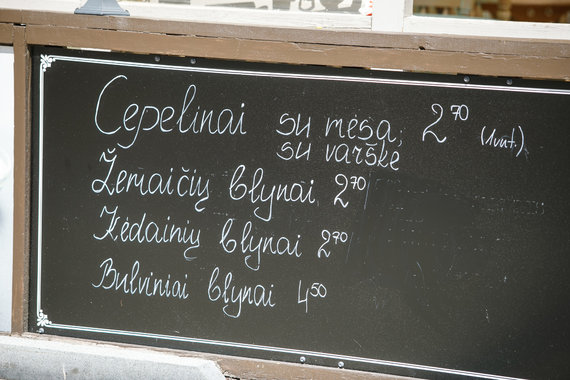 Cepelinai su mėsa, 2⁷⁰ (1vnt.)
su varške
Žemaičių blynai 2⁷⁰
Kėdainių blynai 2⁷⁰
Bulviniai blynai 4⁵⁰